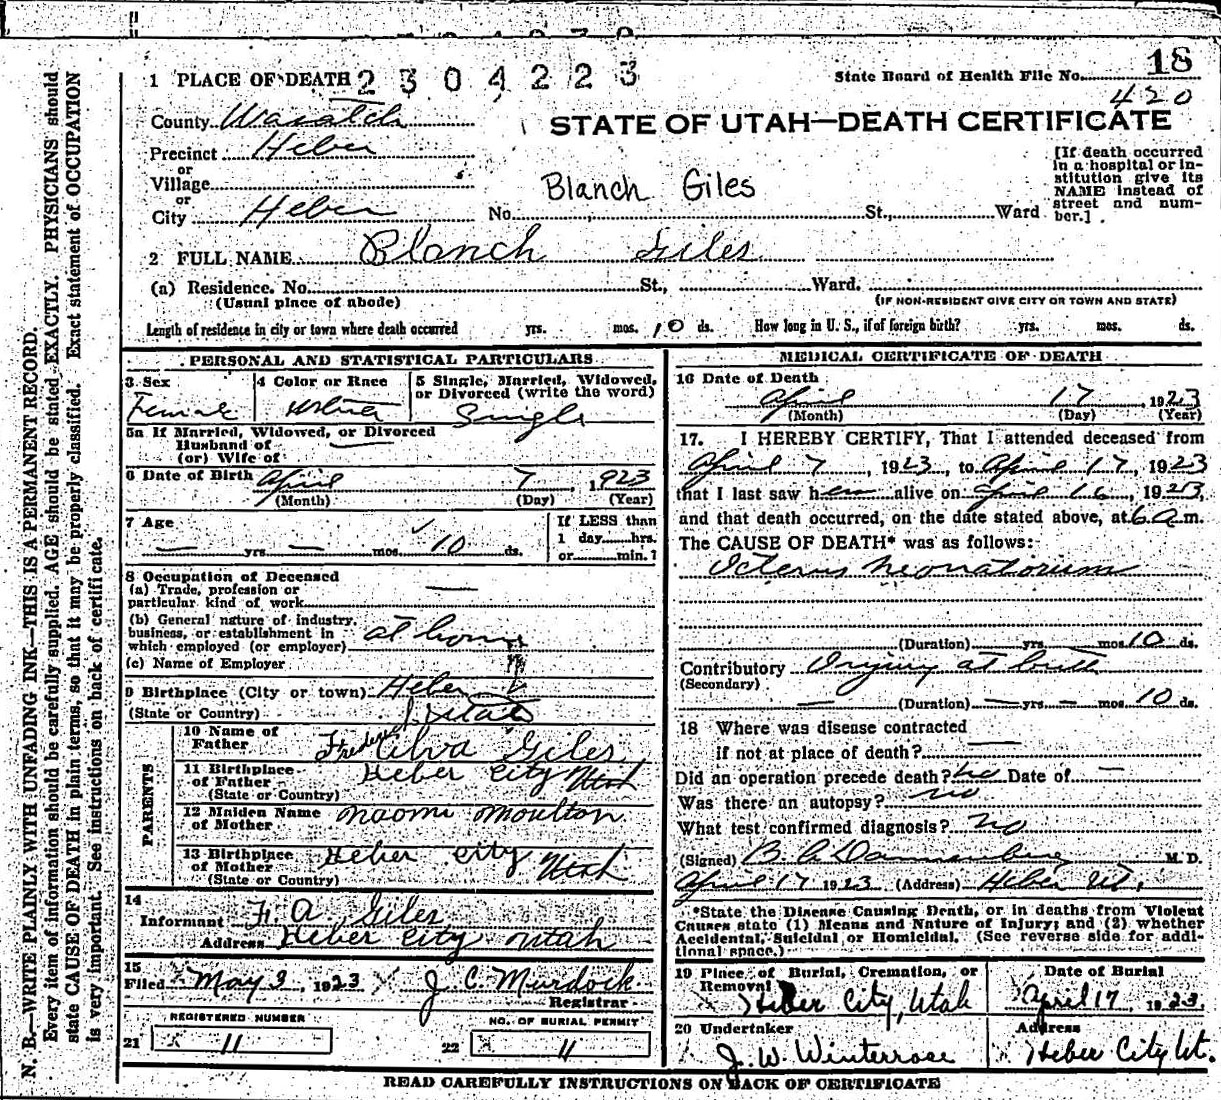 18
1 PLACE OF DEATH 2304223 State Board of Health File No.
420
County Wasatch
STATE OF UTAH—DEATH CERTIFICATE
Precinct Heber
or
Village
or
City Heber No. St., Ward
Blanch Giles
[If death occurred
in a hospital or in-
stitution give its
NAME instead of
street and num-
ber.]
2 FULL NAME Blanch Giles
(a) Residence. No. St., Ward.
(Usual place of abode) (IF NON-RESIDENT GIVE CITY OR TOWN AND STATE)
Length of residence in city or town where death occurred yrs. mos. 10 ds. How long in U. S., if of foreign birth? yrs. mos. ds.
PERSONAL AND STATISTICAL PARTICULARS
3 Sex
Female
4 Color or Race
White
5 Single, Married, Widowed,
or Divorced (write the word)
Single
5a If Married, Widowed, or Divorced
Husband of
(or) Wife of
6 Date of Birth April 7, 1923
(Month) (Day) (Year)
7 Age
— yrs. — mos. 10 ds.
If LESS than
1 day hrs.
or min.?
8 Occupation of Deceased
(a) Trade, profession or
particular kind of work —
(b) General nature of industry,
business, or establishment in
which employed (or employer) at home
(c) Name of Employer
9 Birthplace (City or town) Heber
(State or Country) Utah
PARENTS
10 Name of
Father Frederick Alva Giles
11 Birthplace
of Father Heber City Utah
(State or Country)
12 Maiden Name
of Mother Naomi Moulton
13 Birthplace
of Mother Heber City Utah
(State or Country)
14
Informant F. A. Giles
Address Heber City Utah
15
Filed May 3 1923 J. C. Murdock
Registrar
REGISTERED NUMBER
21 11
NO. OF BURIAL PERMIT
22 11
MEDICAL CERTIFICATE OF DEATH
16 Date of Death
April 17, 1923
(Month) (Day) (Year)
17. I HEREBY CERTIFY, That I attended deceased from
April 7, 1923, to April 17, 1923
that I last saw her alive on April 16, 1923,
and that death occurred, on the date stated above, at 6 a.m.
The CAUSE OF DEATH* was as follows:
Icterus Neonatorium
(Duration) yrs. mos. 10 ds.
Contributory Injury at birth
(Secondary)
— (Duration) — yrs. — mos. 10 ds.
18 Where was disease contracted
if not at place of death? —
Did an operation precede death? no Date of —
Was there an autopsy? no
What test confirmed diagnosis? no
(Signed) M. D.
April 17 1923 (Address) Heber Ut.
*State the Disease Causing Death, or in deaths from Violent
Causes state (1) Means and Nature of Injury; and (2) whether
Accidental, Suicidal or Homicidal. (See reverse side for addi-
tional space.)
19 Place of Burial, Cremation, or
Removal
Heber City, Utah
Date of Burial
April 17 1923
20 Undertaker
J. W. Winterrose
Address
Heber City Ut.
READ CAREFULLY INSTRUCTIONS ON BACK OF CERTIFICATE
N. B.—WRITE PLAINLY WITH UNFADING INK—THIS IS A PERMANENT RECORD.
Every item of information should be carefully supplied. AGE should be stated EXACTLY. PHYSICIANS should
state CAUSE OF DEATH in plain terms, so that it may be properly classified. Exact statement of OCCUPATION
is very important. See instructions on back of certificate.